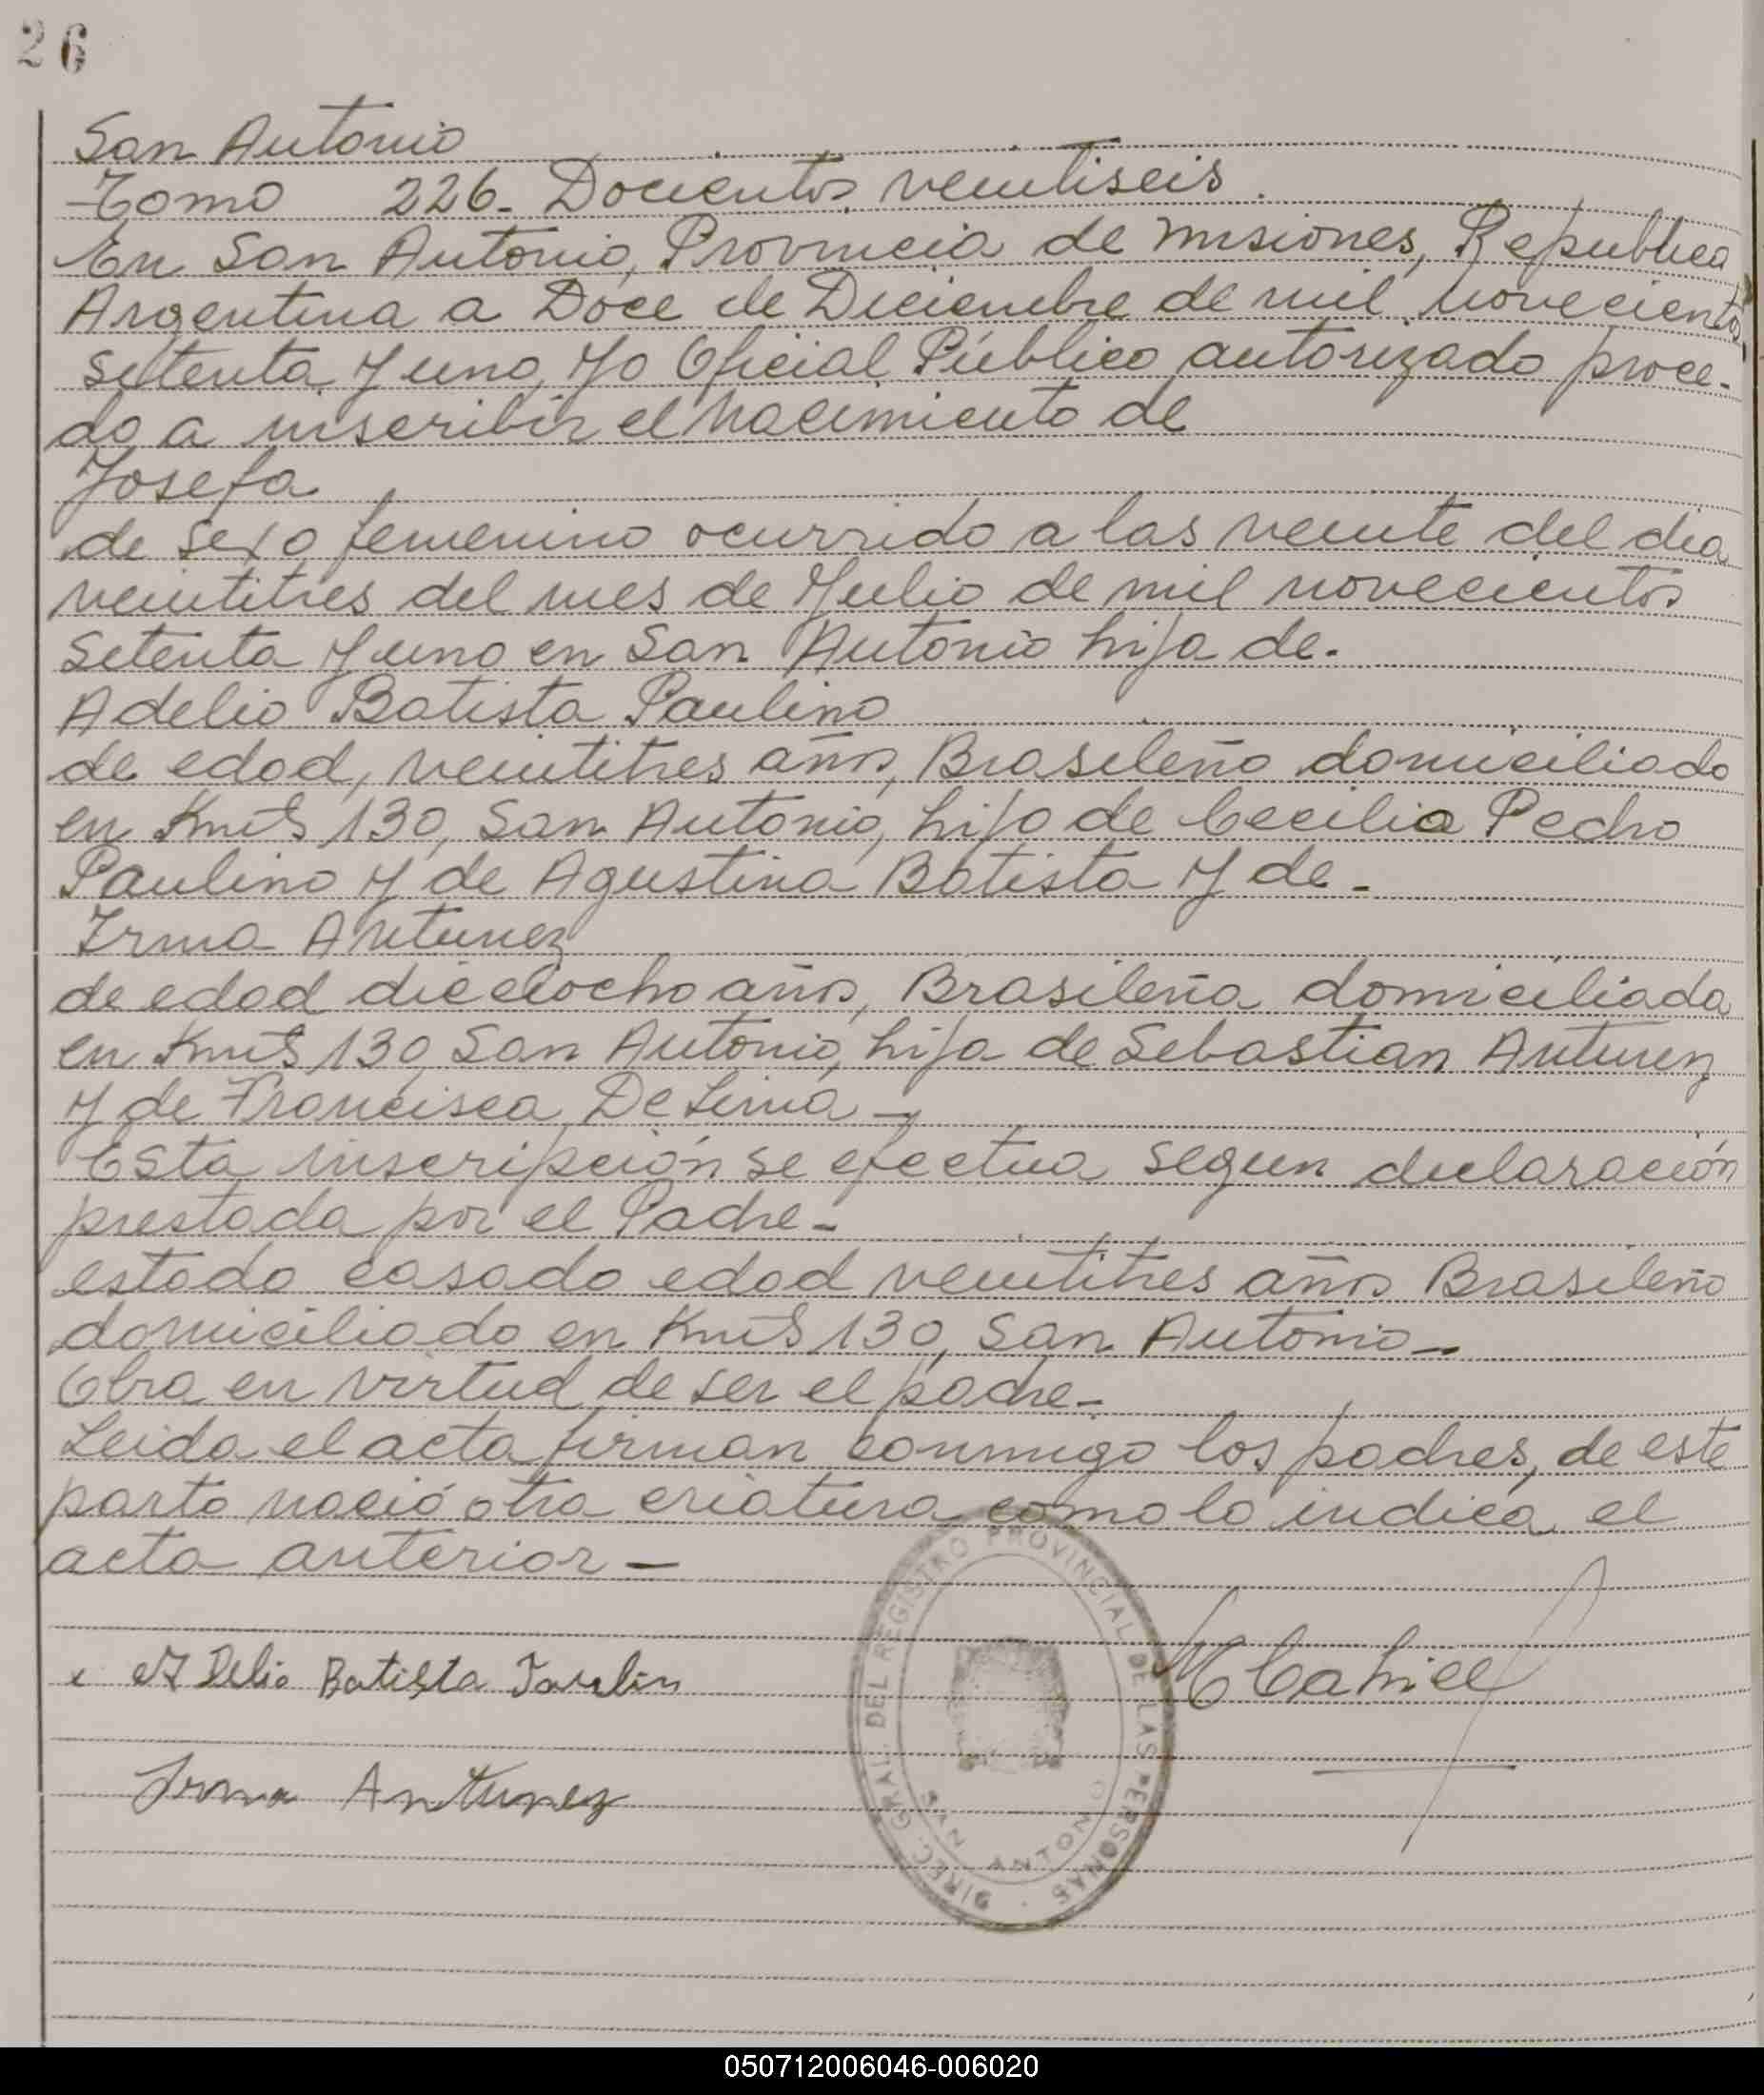 26
San Antonio
Tomo 226. Docientos veintiseis.
En San Antonio, Provincia de Misiones, Republica
Argentina a Doce de Diciembre de mil novecientos
setenta y uno, Yo Oficial Público autorizado proce-
do a inscribir el nacimiento de
Josefa
de sexo femenino ocurrido a las veinte del dia
veintitres del mes de Julio de mil novecientos
setenta y uno en San Antonio hija de.
Adelio Batista Paulino
de edad, veintitres años, Brasileño domiciliado
en Kmts 130, San Antonio, hijo de Cecilio Pedro
Paulino y de Agustina Batista y de-
Irma Antunez
de edad dieciocho años, Brasileña domiciliada
en Kmts 130, San Antonio, hija de Sebastian Antunez
y de Francisca De Lima-
Esta inscripción se efectua segun declaración
prestada por el Padre-
estado casado edad veintitres años Brasileño
domiciliado en Kmts 130, San Antonio-
Obra en virtud de ser el padre-
Leida el acta firman conmigo los padres, de este
parto nació otra criatura como lo indica el
acta anterior-
DIREC. GRAL. DEL REGISTRO PROVINCIAL DE LAS PERSONAS
SAN ANTONIO
x Delio Batista
Irma Antunez
050712006046-006020